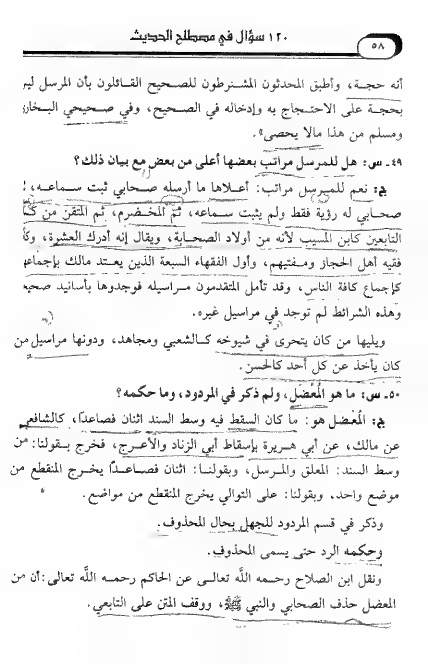 ١٢٠ سؤال في مصطلح الحديث
٥٨
أنه حجية، وأطبق المحدثون المشترطون للصحيح القائلون بأن المرسل ليس
بحجة على الاحتجاج به وإدخاله في الصحيح، وفي صحيحي البخاري
ومسلم من هذا مالا يحصى».
٤٩ـ س: هل للمرسل مراتب بعضها أعلى من بعض مع بيان ذلك؟
ج: نعم للمرسل مراتب: أعلاها ما أرسله صحابي ثبت سماعه،
صحابي له رؤية فقط ولم يثبت سماعه، ثم المخضرم، ثم المتقن من
التابعين كابن المسيب لأنه من أولاد الصحابة، ويقال إنه أدرك العشرة،
فقيه أهل الحجاز ومفتيهم، وأول الفقهاء السبعة الذين يعتد مالك بإجماعهم
كإجماع كافة الناس، وقد تأمل المتقدمون مراسيله فوجدوها بأسانيد صحيحة
وهذه الشرائط لم توجد في مراسيل غيره.
ويليها من كان يتحرى في شيوخه كالشعبي ومجاهد، ودونها مراسيل من
كان يأخذ عن كل أحد كالحسن.
٥٠ـ س: ما هو المُعْضَل، ولم ذكر في المردود، وما حكمه؟
ج: المُعْضل هو: ما كان السقط فيه وسط السند اثنان فصاعدًا، كالشافعي
عن مالك، عن أبي هريرة بإسقاط أبي الزناد والأعرج، فخرج بقولنا: من
وسط السند: المعلق والمرسل، وبقولنا: اثنان فصاعدًا يخرج المنقطع من
موضع واحد، وبقولنا: على التوالي يخرج المنقطع من مواضع.
وذكر في قسم المردود للجهل بحال المحذوف.
وحكمه الرد حتى يسمى المحذوف.
ونقل ابن الصلاح رحمه اللَّه تعالى عن الحاكم رحمه اللَّه تعالى: أن من
المعضل حذف الصحابي والنبي ﷺ، ووقف المتن على التابعي.